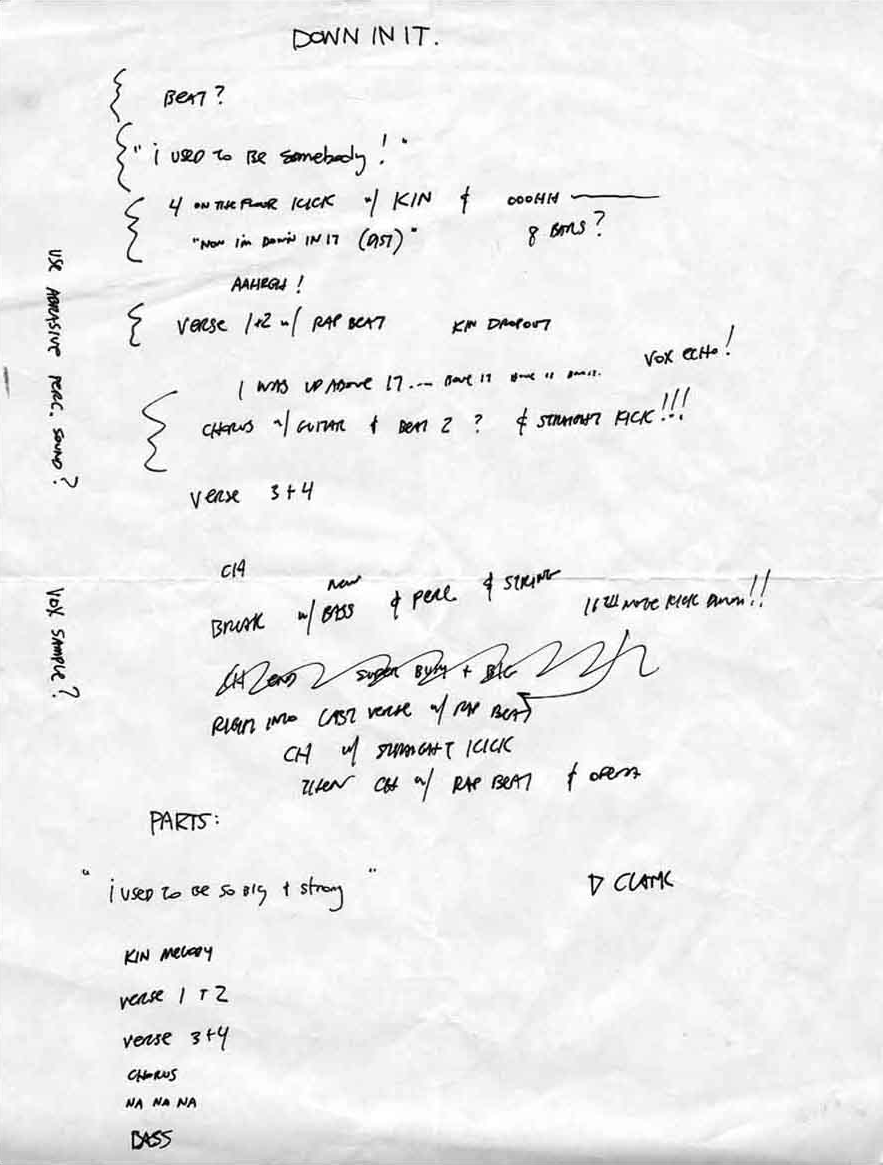 DOWN IN IT.
BEAT?
"i USED to BE somebody!"
4 ON THE FLOOR KICK w/ KIN & OOOHH
"NOW i'm DOWN IN IT (DIST)" 8 BARS?
AAHRGH!
VERSE 1+2 w/ RAP BEAT KIN DROPOUT
I WAS UP ABOVE IT.... BOVE IT BOVE IT VOX ECHO!
CHORUS w/ GUITAR & BEAT 2 ? & STRAIGHT KICK!!!
VERSE 3+4
CH
BREAK w/ new BASS & PERC & STRING 16TH NOTE KICK
CH END SUPER BUSY + BIG
RIGHT INTO LAST VERSE w/ RAP BEAT
CH w/ STRAIGHT KICK
THEN CH w/ RAP BEAT &
USE ABRASIVE PERC. SOUND?
VOX SAMPLE?
PARTS:
"i USED to BE SO BIG + strong"
D CLARK
KIN MELODY
VERSE 1 + 2
VERSE 3+4
CHORUS
NA NA NA
BASS